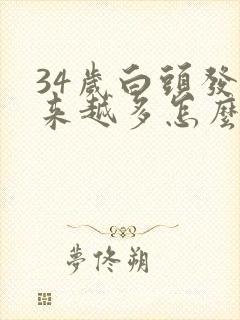 34歲白頭發
來越多怎麼
夢佟朔